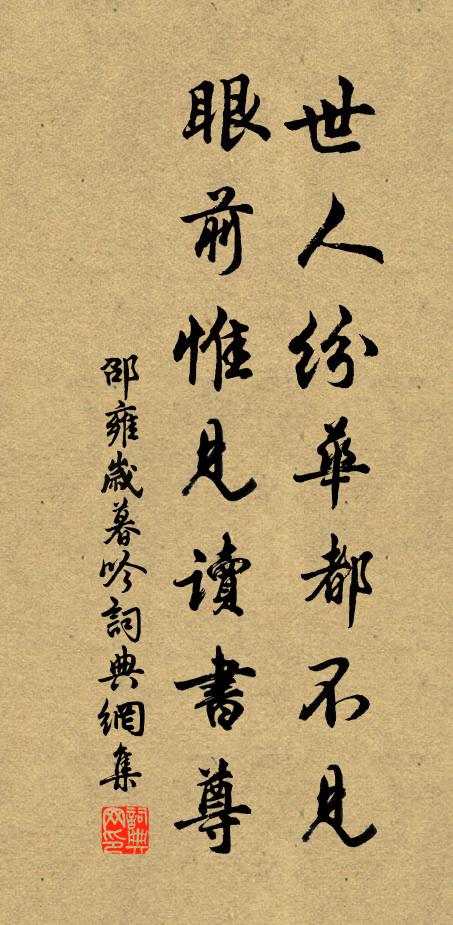 世人纷華都不見
眼前惟見讀書尊
邵雍歲暮吟詞典網集
詞典网印